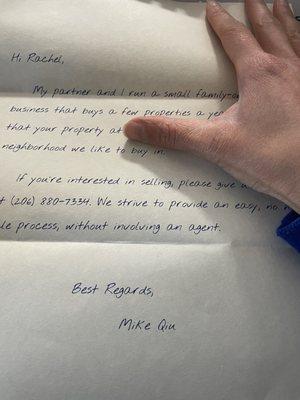 Hi Rachel,
My partner and I run a small family-o
business that buys a few properties a ye
that your property at
neighborhood we like to buy in.
If you're interested in selling, please give u
t (206) 880-7334. We strive to provide an easy, no
le process, without involving an agent.
Best Regards,
Mike Qiu